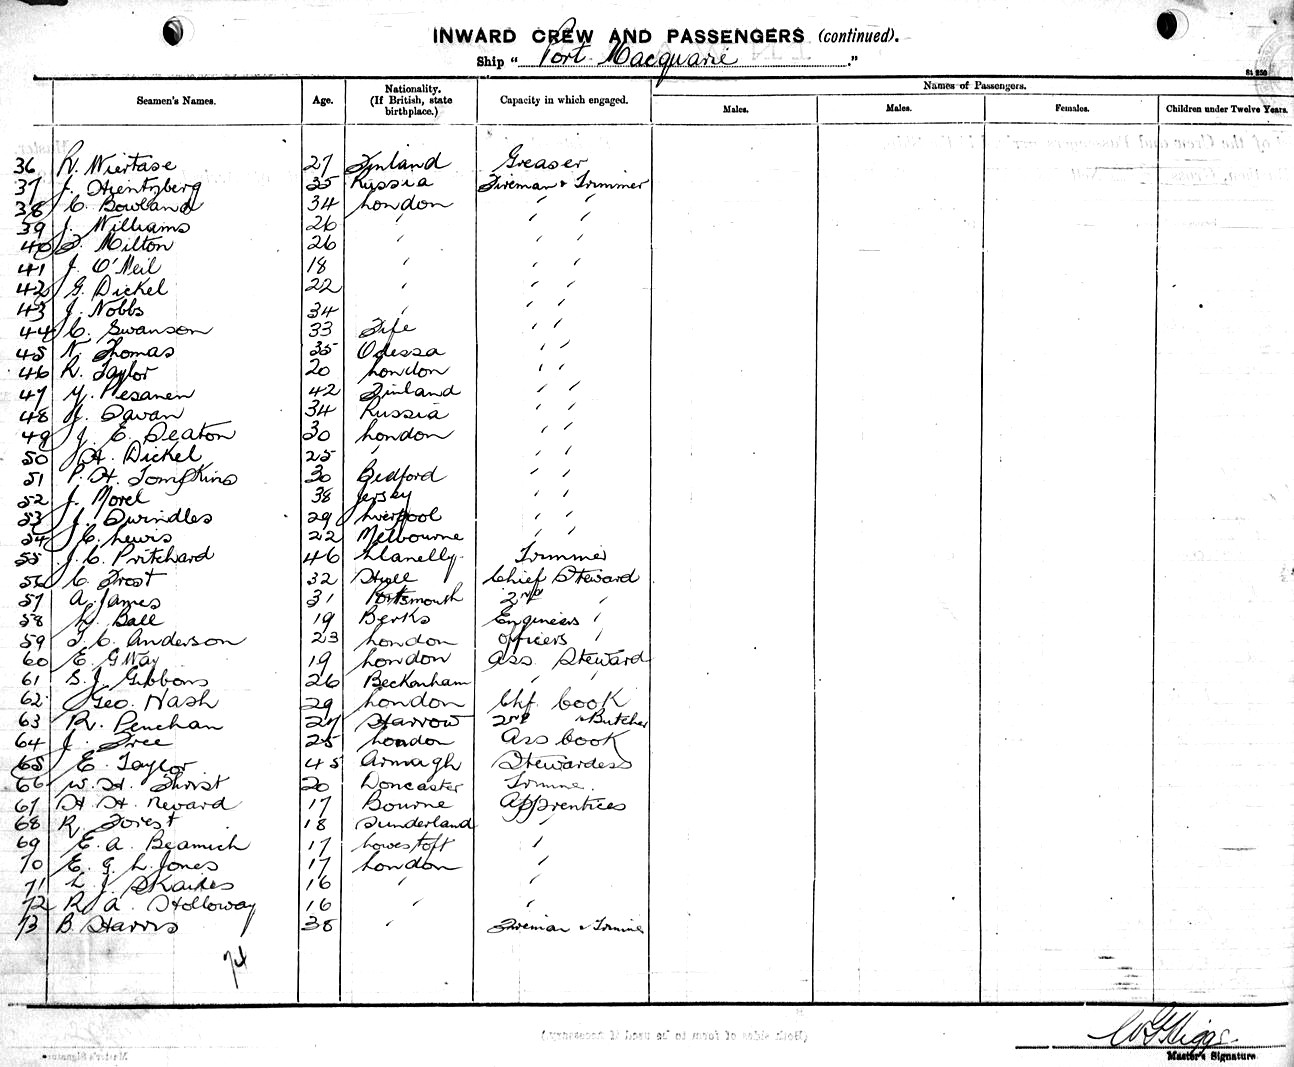 INWARD CREW AND PASSENGERS (continued).
Ship "Port Macquarie."
Seamen's Names. Age. Nationality. (If British, state birthplace.) Capacity in which engaged. Names of Passengers.
Males. Males. Females. Children under Twelve Years.
36 R. Niertase 27 Finland Greaser
37 J. Hientzberg 35 Russia Fireman & Trimmer
38 C. Bowland 34 London " "
39 J. Williams 26 " " "
40 Milton 26 " " "
41 J. O'Neil 18 " " "
42 G. Dickel 22 " " "
43 J. Nobbs 34 " " "
44 C. Swanson 33 Fife " "
45 N. Thomas 35 Odessa " "
46 R. Taylor 20 London " "
47 Y. Pesanen 42 Finland " "
48 Savan 34 Russia " "
49 J. E. Seaton 30 London " "
50 H. Dickel 25 " " "
51 P. H. Tompkins 30 Bedford " "
52 J. Morel 38 Jersey " "
53 J. Swindles 29 Liverpool " "
54 C. Lewis 22 Melbourne " "
55 J. C. Pritchard 46 Llanelly Trimmer
56 C. Frost 32 Hull Chief Steward
57 A. James 31 Portsmouth 2nd "
58 L. Ball 19 Berks Engineers "
59 T. C. Anderson 23 London Officers "
60 E. G Way 19 London Ass. Steward
61 S. J. Gibbons 26 Beckenham " "
62 Geo. Nash 29 London Chf. Cook
63 R. Penchan 27 Harrow 2nd " & Butcher
64 J. Free 25 London Ass Cook
65 E. Taylor 45 Armagh Stewardess
66 W. H. Thirst 20 Doncaster Trimme.
67 H. H. Neward 17 Bourne Apprentices
68 R. Forest 18 Sunderland "
69 E. A. Beamich 17 Lowestoft "
70 E. G. L. Jones 17 London "
71 L. J. Skaites 16 " "
72 R. A. Holloway 16 " "
73 B. Harris 38 " Fireman & Trimme
74
W G Higgs.
Master's Signature.